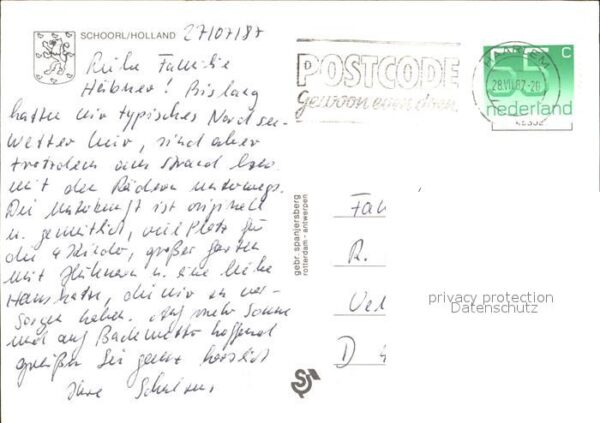 SCHOORL/HOLLAND 27/07/87
Liebe Familie
Hübner! Bislang
hatten wir typisches Nordsee-
wetter hier, sind aber
trotzdem am Strand bzw.
mit den Rädern unterwegs.
Die Unterkunft ist originell
u. gemütlich, viel Platz für
die 4 Kinder, großer Garten
mit Hühnern u. eine liebe
Hauskatze, die wir zu ver-
sorgen haben. Auf mehr Sonne
und auf Badewetter hoffend
grüßen Sie ganz herzlich
Ihre
POSTCODE
gewoon even doen
HAARLEM
28.VII.87.-20
55 c
nederland
gebr. spanjersberg
rotterdam - antwerpen
Fam
R.
Vel
D 4
privacy protection
Datenschutz